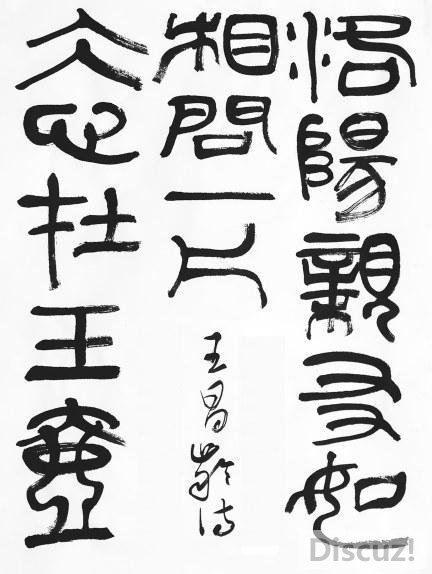 洛陽親友如
相問一片
王昌齡詩
冰心在玉壺
Discuz!